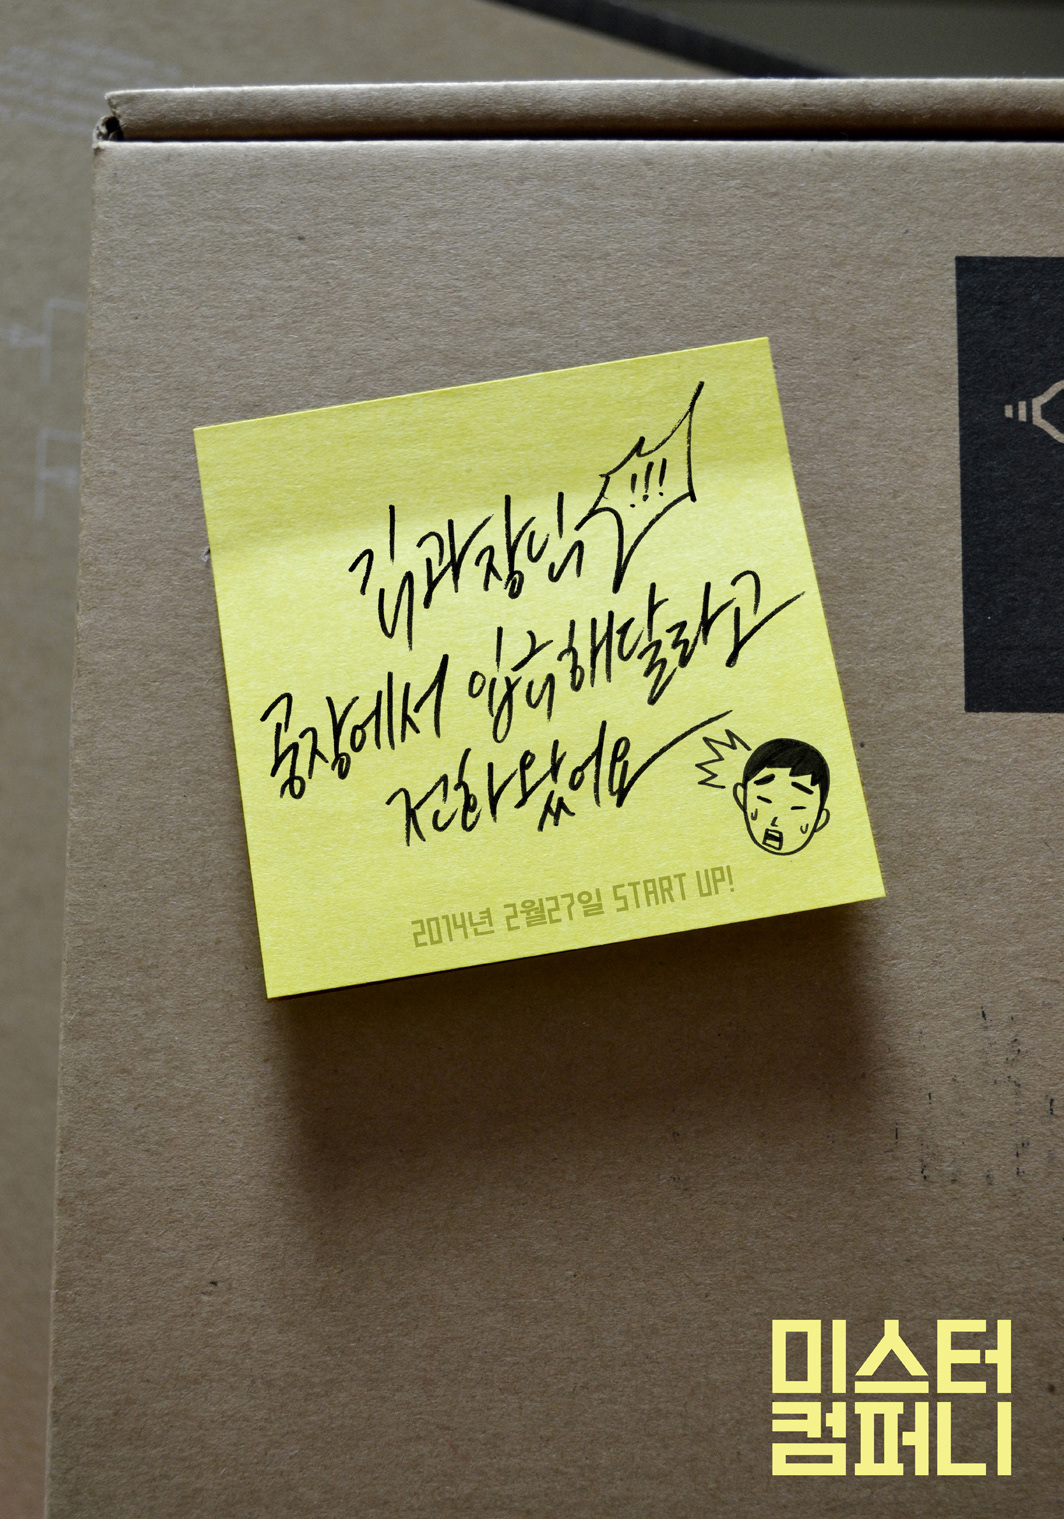 김과장님!!!
공장에서 입금해달라고
전화왔어요
2014년 2월27일 START UP!
미스터
컴퍼니